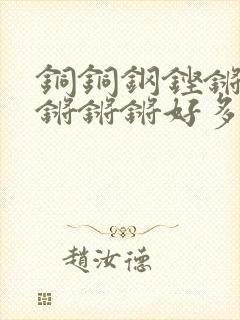 銅銅鋼鏗鏘
鏘鏘鏘好多
趙汝德